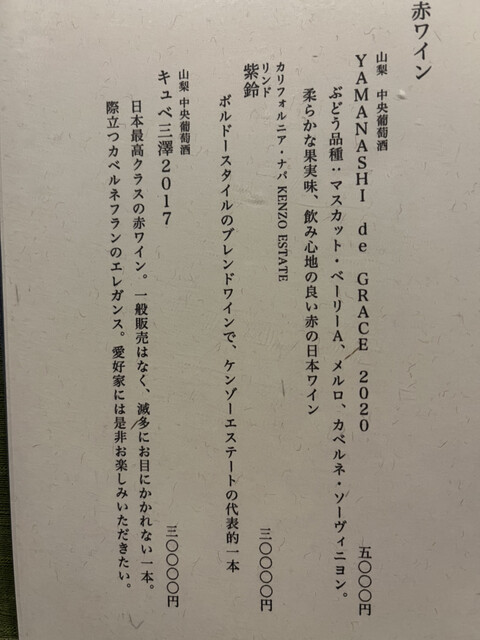 赤ワイン
山梨 中央葡萄酒
YAMANASHI de GRACE 2020 五〇〇〇円
ぶどう品種：マスカット・ベーリーA、メルロ、カベルネ・ソーヴィニヨン。
柔らかな果実味、飲み心地の良い赤の日本ワイン
カリフォルニア・ナパ KENZO ESTATE
リンド
紫鈴 三〇〇〇〇円
ボルドースタイルのブレンドワインで、ケンゾーエステートの代表的一本
山梨 中央葡萄酒
キュベ三澤2017 三〇〇〇〇円
日本最高クラスの赤ワイン。一般販売はなく、滅多にお目にかかれない一本。
際立つカベルネフランのエレガンス。愛好家には是非お楽しみいただきたい。